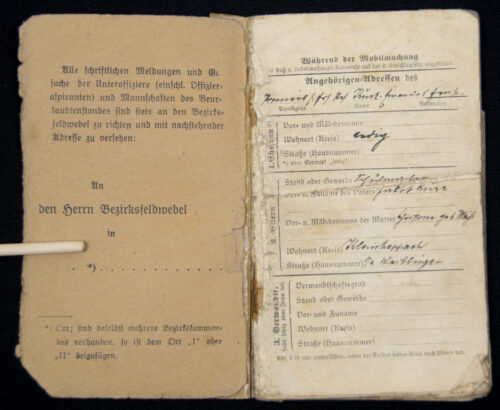 Alle schriftlichen Meldungen und Ge
suche der Unteroffiziere (einschl. Offizier-
aspiranten) und Mannschaften des Beur-
laubtenstandes sind stets an den Bezirks-
feldwebel zu richten und mit nachstehender
Adresse zu versehen:
An
den Herrn Bezirksfeldwebel
in
*)
*) Ort; sind daselbst mehrere Bezirkskomman-
dos vorhanden, so ist dem Ort "I" oder
"II" beizufügen.
Während der Mobilmachung
Angehörigen-Adressen des
Dienstgrad Name Rufnamen
1. Ehefrau*)
Vor- und Mädchenname
Wohnort (Kreis) ledig
Straße (Hausnummer)
*) oder Vermerk "ledig".
2. Eltern
Stand oder Gewerbe
Vor- u. Zuname des Vaters
Vor- u. Mädchenname der Mutter
Wohnort (Kreis) Kleinheppach
Straße (Hausnummer) Waiblingen
3. Verwandte,
Verwandtschaftsgrad
Stand oder Gewerbe
Vor- und Zuname
Wohnort (Kreis)
Straße (Hausnummer)